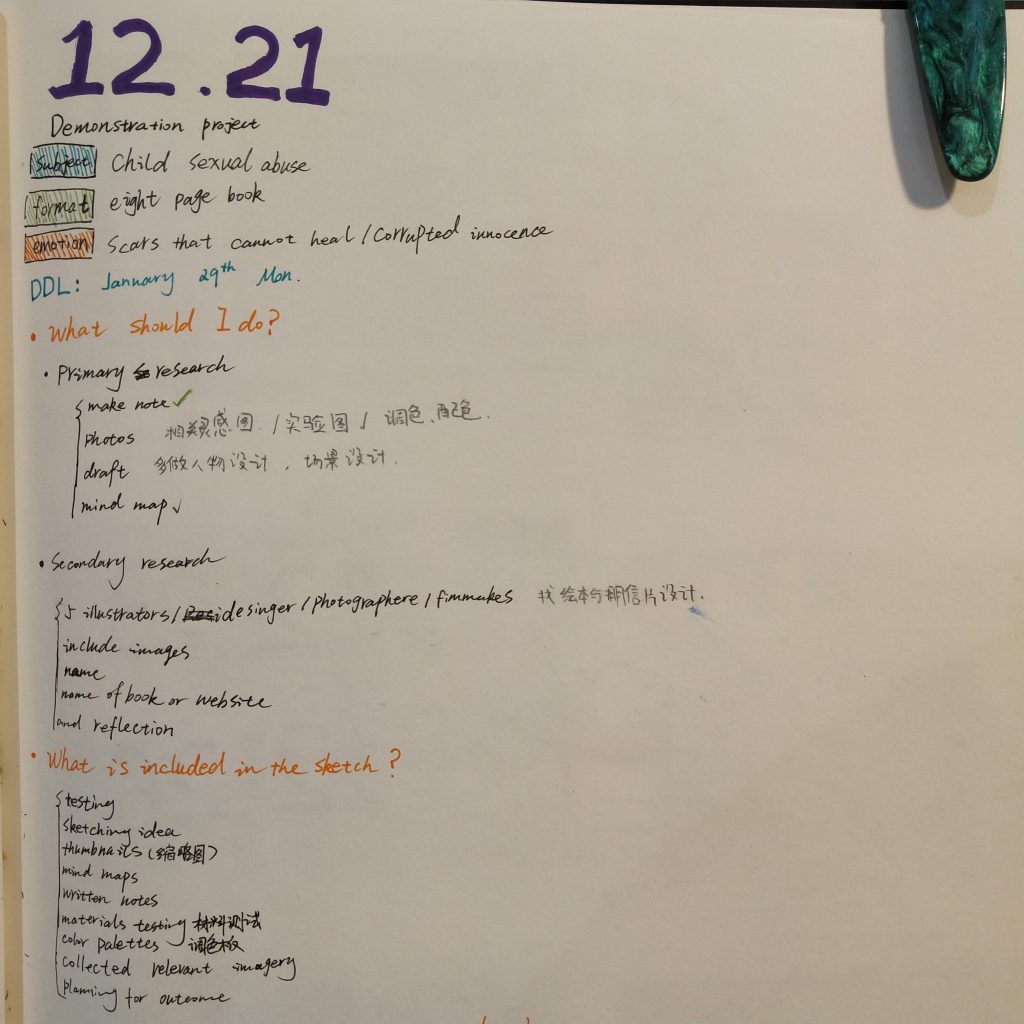 12.21
Demonstration project
subject Child sexual abuse
format eight page book
emotion Scars that cannot heal / Corrupted innocence
DDL: January 29th Mon.
• What should I do?
• Primary research
make note ✓
photos 相关灵感图 / 实验图 / 调色、配色.
draft 多做人物设计，场景设计.
mind map ✓
• Secondary research
5 illustrators / idesinger / photographere / fimmakes 找绘本与明信片设计.
include images
name
name of book or website
and reflection
• What is included in the sketch?
testing
sketching idea
thumbnails (缩略图)
mind maps
written notes
materials testing 材料测试
color palettes 调色板
collected relevant imagery
planning for outcome